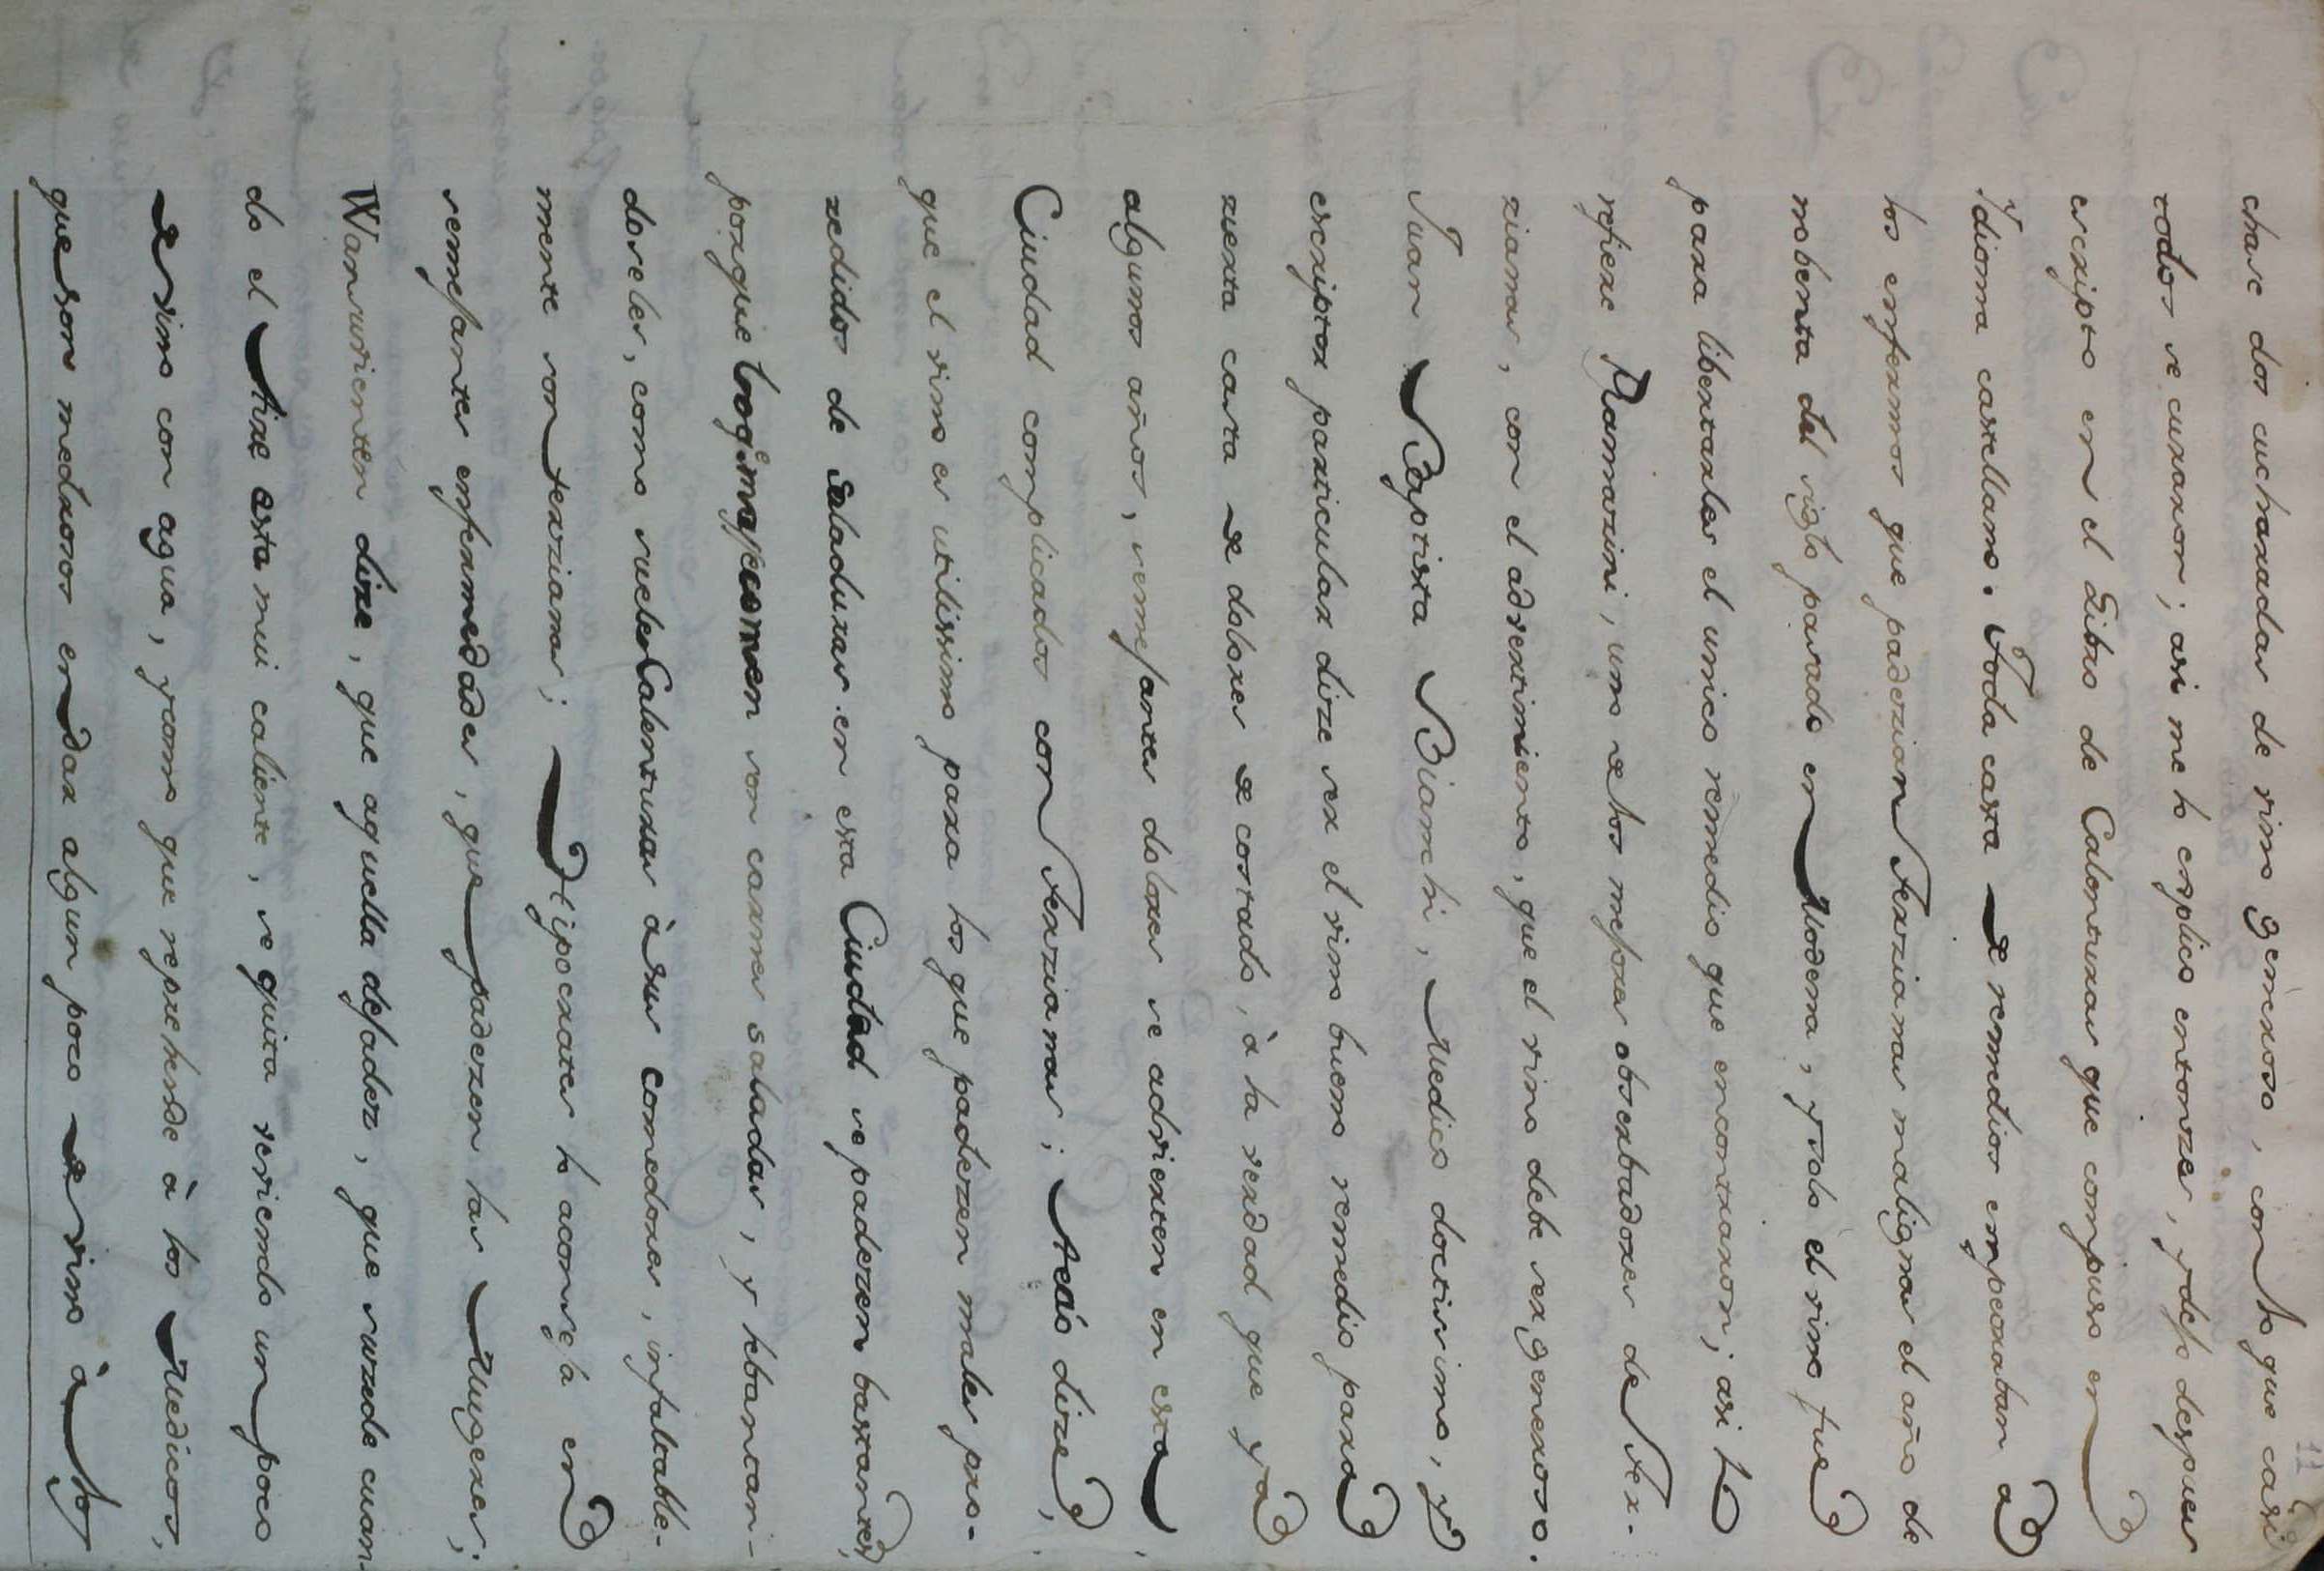 charse dos cucharadas de vino generoso, con lo que casi
todos se curaron; asi me lo esplico entonzes, y dejo despues
escripto en el Libro de Calenturas que compuso en
Ydioma castellano. Toda casta de remedios empeoraban a
los enfermos que padezian Terzianas malignas el año de
nobenta del siglo pasado en Modena, y solo el vino fue
para libertarles el unico remedio que encontraron; asi lo
refiere Ramazini, uno de los mejores obserbadores de Ter-
zianas, con el advertimiento, que el vino debe ser generoso.
Juan Baptista Bianchi, Medico doctisimo, y
escriptor particular dize ser el vino bueno remedio para
zierta casta de dolores de costado, à la verdad que ya
algunos años, semejantes dolores se advierten en esta
Ciudad complicados con Terzianas; Aezio dize,
que el vino es utilissimo para los que padezen males pro-
zedidos de Saladuras en esta Ciudad se padezen bastantes,
porque lo q.e mas comen son carnes saladas, y lebantan-
doseles, como sueles Calenturas à sus comedores, infaltable-
mente son terzianas; Hipocrates lo aconseja en
semejantes enfermedades, que padezen las Mugeres;
Wansvvieten dize, que aquella dejadez, que suzede cuan-
do el Aire esta mui caliente, se quita veviendo un poco
de vino con agua, y aun que reprehende à los Medicos,
que son medrosos en dar algun poco de vino à los